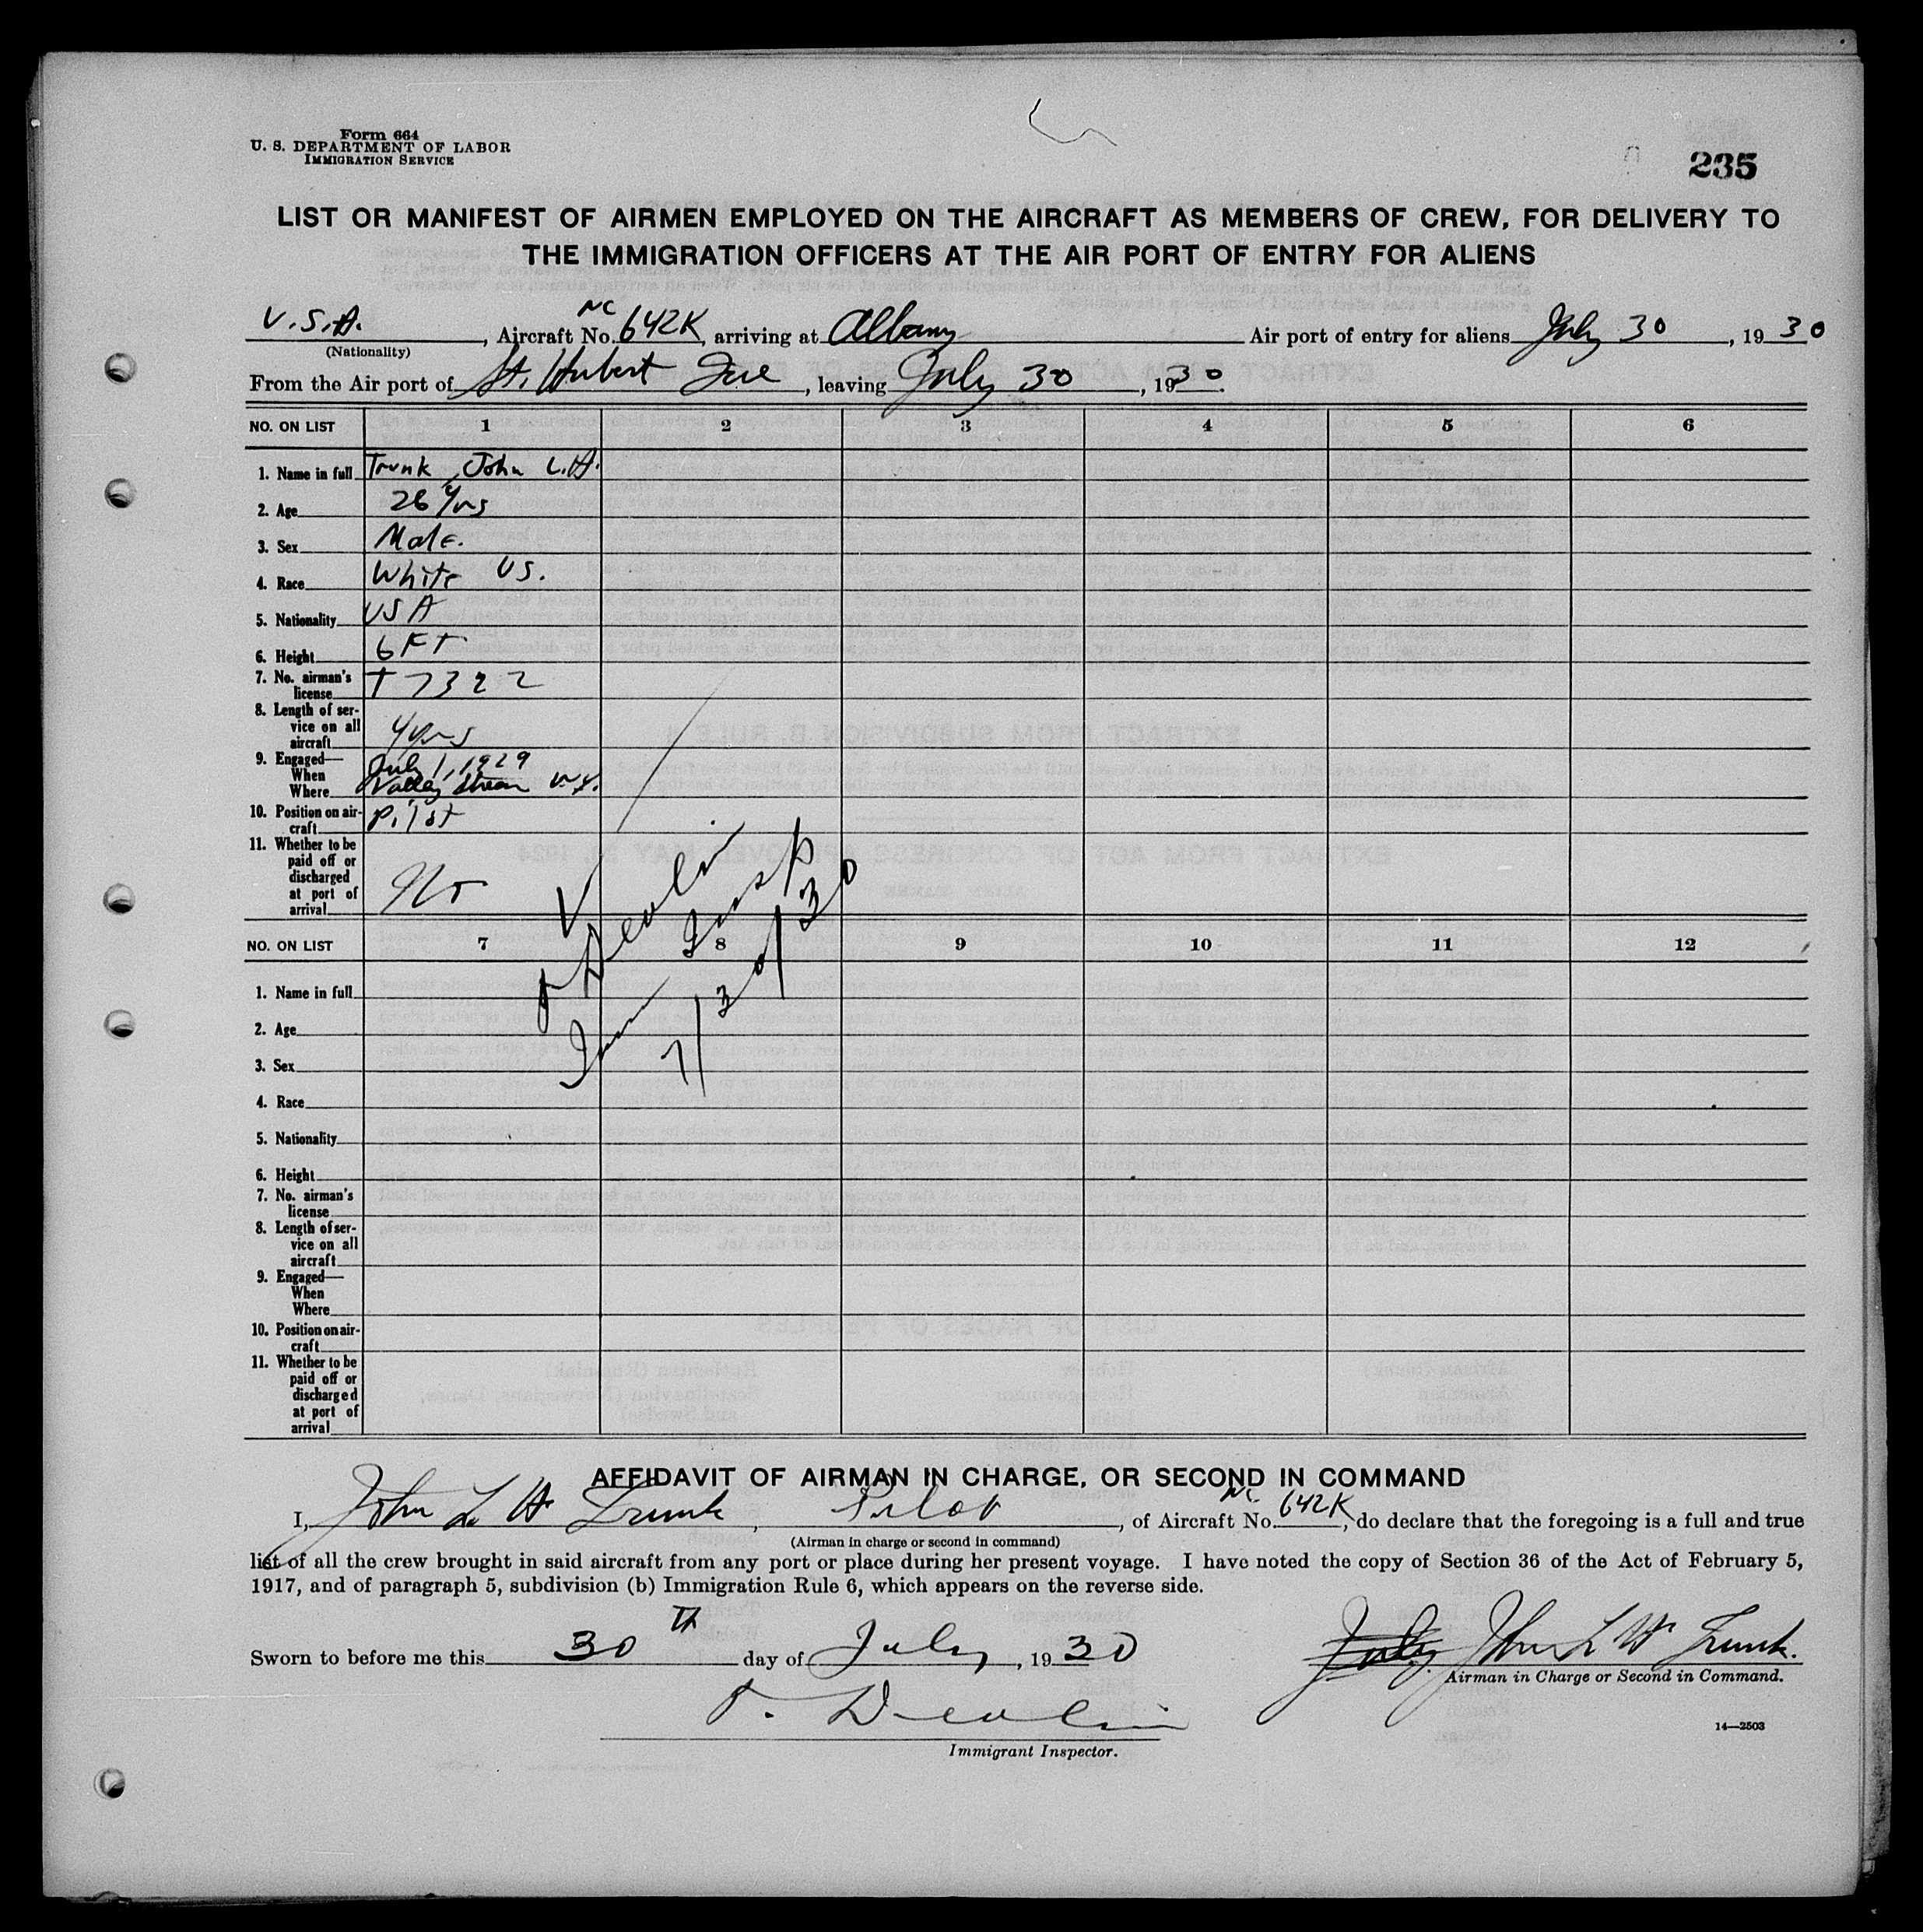 Form 664
U. S. DEPARTMENT OF LABOR
IMMIGRATION SERVICE
235
LIST OR MANIFEST OF AIRMEN EMPLOYED ON THE AIRCRAFT AS MEMBERS OF CREW, FOR DELIVERY TO
THE IMMIGRATION OFFICERS AT THE AIR PORT OF ENTRY FOR ALIENS
U.S.A., Aircraft No. NC 642K, arriving at Albany Air port of entry for aliens July 30, 1930
(Nationality)
From the Air port of St. Hubert Que, leaving July 30, 1930.
NO. ON LIST 1 2 3 4 5 6
1. Name in full Trunk, John L.H.
2. Age 26 Yrs
3. Sex Male.
4. Race White US.
5. Nationality USA
6. Height 6 FT
7. No. airman's
license T 7322
8. Length of ser-
vice on all
aircraft 4 yrs
9. Engaged—
When July 1, 1929
Where Valley Stream N.Y.
10. Position on air-
craft Pilot
11. Whether to be
paid off or
discharged
at port of
arrival No
Devlin
Imm Insp
7/30/30
NO. ON LIST 7 8 9 10 11 12
1. Name in full
2. Age
3. Sex
4. Race
5. Nationality
6. Height
7. No. airman's
license
8. Length of ser-
vice on all
aircraft
9. Engaged—
When
Where
10. Position on air-
craft
11. Whether to be
paid off or
discharged
at port of
arrival
AFFIDAVIT OF AIRMAN IN CHARGE, OR SECOND IN COMMAND
I, John L H Trunk, Pilot, of Aircraft No. NC 642K, do declare that the foregoing is a full and true
(Airman in charge or second in command)
list of all the crew brought in said aircraft from any port or place during her present voyage. I have noted the copy of Section 36 of the Act of February 5,
1917, and of paragraph 5, subdivision (b) Immigration Rule 6, which appears on the reverse side.
Sworn to before me this 30 TH day of July, 1930
John L H Trunk.
Airman in Charge or Second in Command.
Devlin
Immigrant Inspector.
14—2503